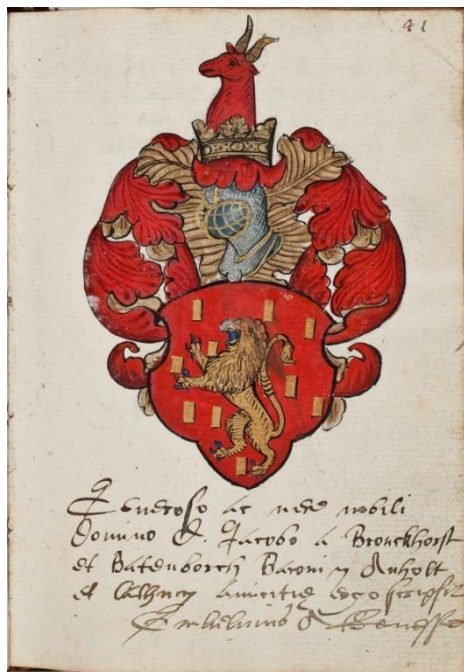 41
Generoso ac vere nobili
Domino D. Jacobo a Bronckhorst
et Batenborch Baroni in Anholt
et amicitię ergo scripsit